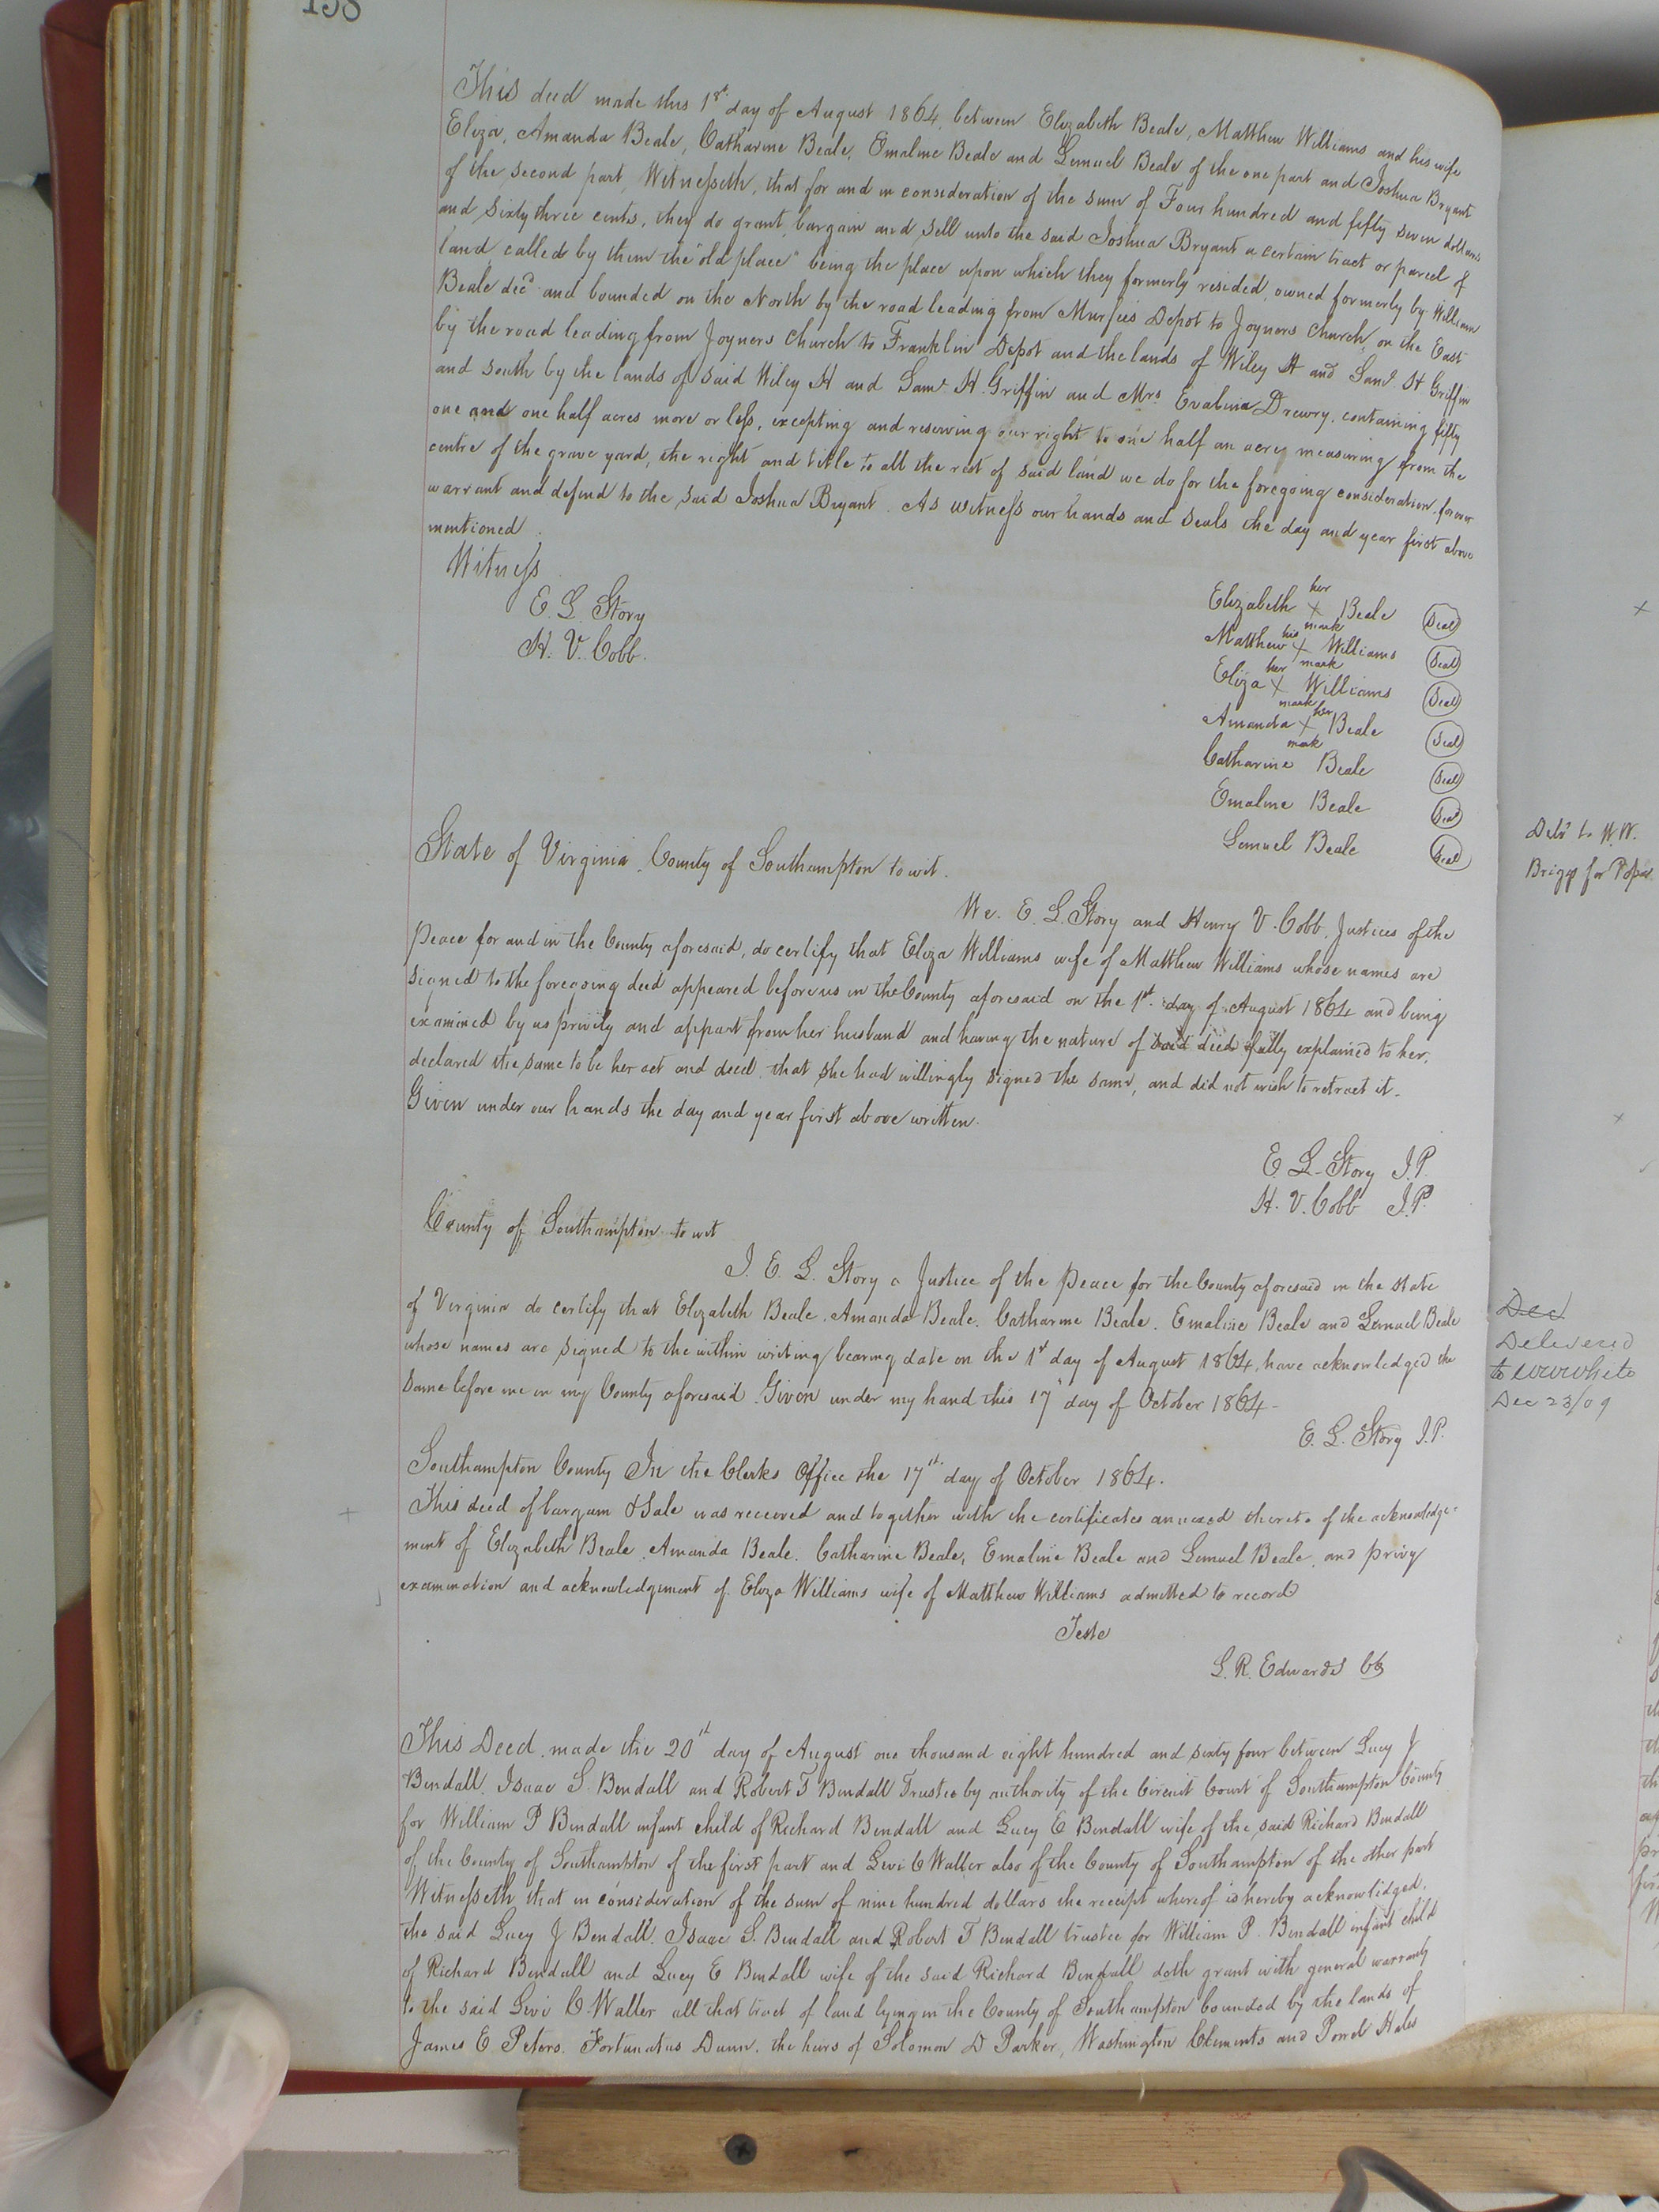 138
This deed made this 1st day of August 1864, between Elizabeth Beale, Matthew Williams and his wife
Eliza, Amanda Beale, Catharine Beale, Emaline Beale and Lemuel Beale of the one part and Joshua Bryant
of the second part, Witnesseth, that for and in consideration of the sum of Four hundred and fifty seven dollars
and Sixty three cents, they do grant, bargain and sell unto the said Joshua Bryant a certain tract or parcel of
land called by them the "old place" being the place upon which they formerly resided, owned formerly by William
Beale decd and bounded on the North by the road leading from Murfees Depot to Joyners Church, on the East
by the road leading from Joyners Church to Franklin Depot and the lands of Wiley H and Saml H Griffin
and South by the lands of said Wiley H and Saml H. Griffin and Mrs Evalina Drewry, containing fifty
one and one half acres more or less, excepting and reserving our right to one half an acre, measuring from the
centre of the grave yard, the right and title to all the rest of said land we do for the foregoing consideration, forever
warrant and defend to the said Joshua Bryant. As witness our hands and seals the day and year first above
mentioned
Witness
E L Story
H. V. Cobb.
Elizabeth her X mark Beale Seal
Matthew his X mark Williams Seal
Eliza her X mark Williams Seal
Amanda her X mark Beale Seal
Catharine Beale Seal
Emaline Beale Seal
Lemuel Beale Seal
State of Virginia, County of Southampton to wit.
Deld to W. W.
Briggs for
We. E. L. Story and Henry V. Cobb, Justices of the
Peace for and in the County aforesaid, do certify that Eliza Williams wife of Matthew Williams whose names are
signed to the foregoing deed appeared before us in the County aforesaid on the 1st day of August 1864 and being
examined by us privily and appart from her husband and having the nature of said deed fully explained to her,
declared the same to be her act and deed, that she had willingly signed the same, and did not wish to retract it.
Given under our hands the day and year first above written.
E. L. Story J.P.
H. V. Cobb J.P.
County of Southampton to wit
I. E. L. Story a Justice of the Peace for the County aforesaid in the State
of Virginia do certify that Elizabeth Beale, Amanda Beale, Catharine Beale, Emaline Beale and Lemuel Beale
whose names are signed to the within writing bearing date on the 1st day of August 1864, have acknowledged the
same before me in my County aforesaid. Given under my hand this 17th day of October 1864-
Dec
Delivered
to
Dec 23/09
E. L. Story J.P.
Southampton County In the Clerks Office the 17th day of October 1864.
This deed of bargain & Sale was received and together with the certificates annexed thereto of the acknowledge-
ment of Elizabeth Beale, Amanda Beale, Catharine Beale, Emaline Beale and Lemuel Beale, and privy
examination and acknowledgement of Eliza Williams wife of Matthew Williams admitted to record
Teste
L. R. Edwards Ck
This Deed, made the 20th day of August one thousand eight hundred and sixty four between Lucy J
Bendall, Isaac S. Bendall and Robert T Bendall Trustee by authority of the Circuit Court of Southampton County
for William P Bendall infant child of Richard Bendall and Lucy E Bendall wife of the said Richard Bendall
of the County of Southampton of the first part and Levi C Waller also of the County of Southampton of the other part
Witnesseth that in consideration of the sum of nine hundred dollars the receipt whereof is hereby acknowledged.
the said Lucy J Bendall, Isaac S. Bendall and Robert T Bendall trustee for William P. Bendall infant child
of Richard Bendall and Lucy E Bendall wife of the said Richard Bendall doth grant with general warranty
to the said Levi C Waller all that tract of land lying in the County of Southampton bounded by the lands of
James E Peters, Fortunatus Dunn, the heirs of Solomon D Parker, Washington Clements and Powel Hales